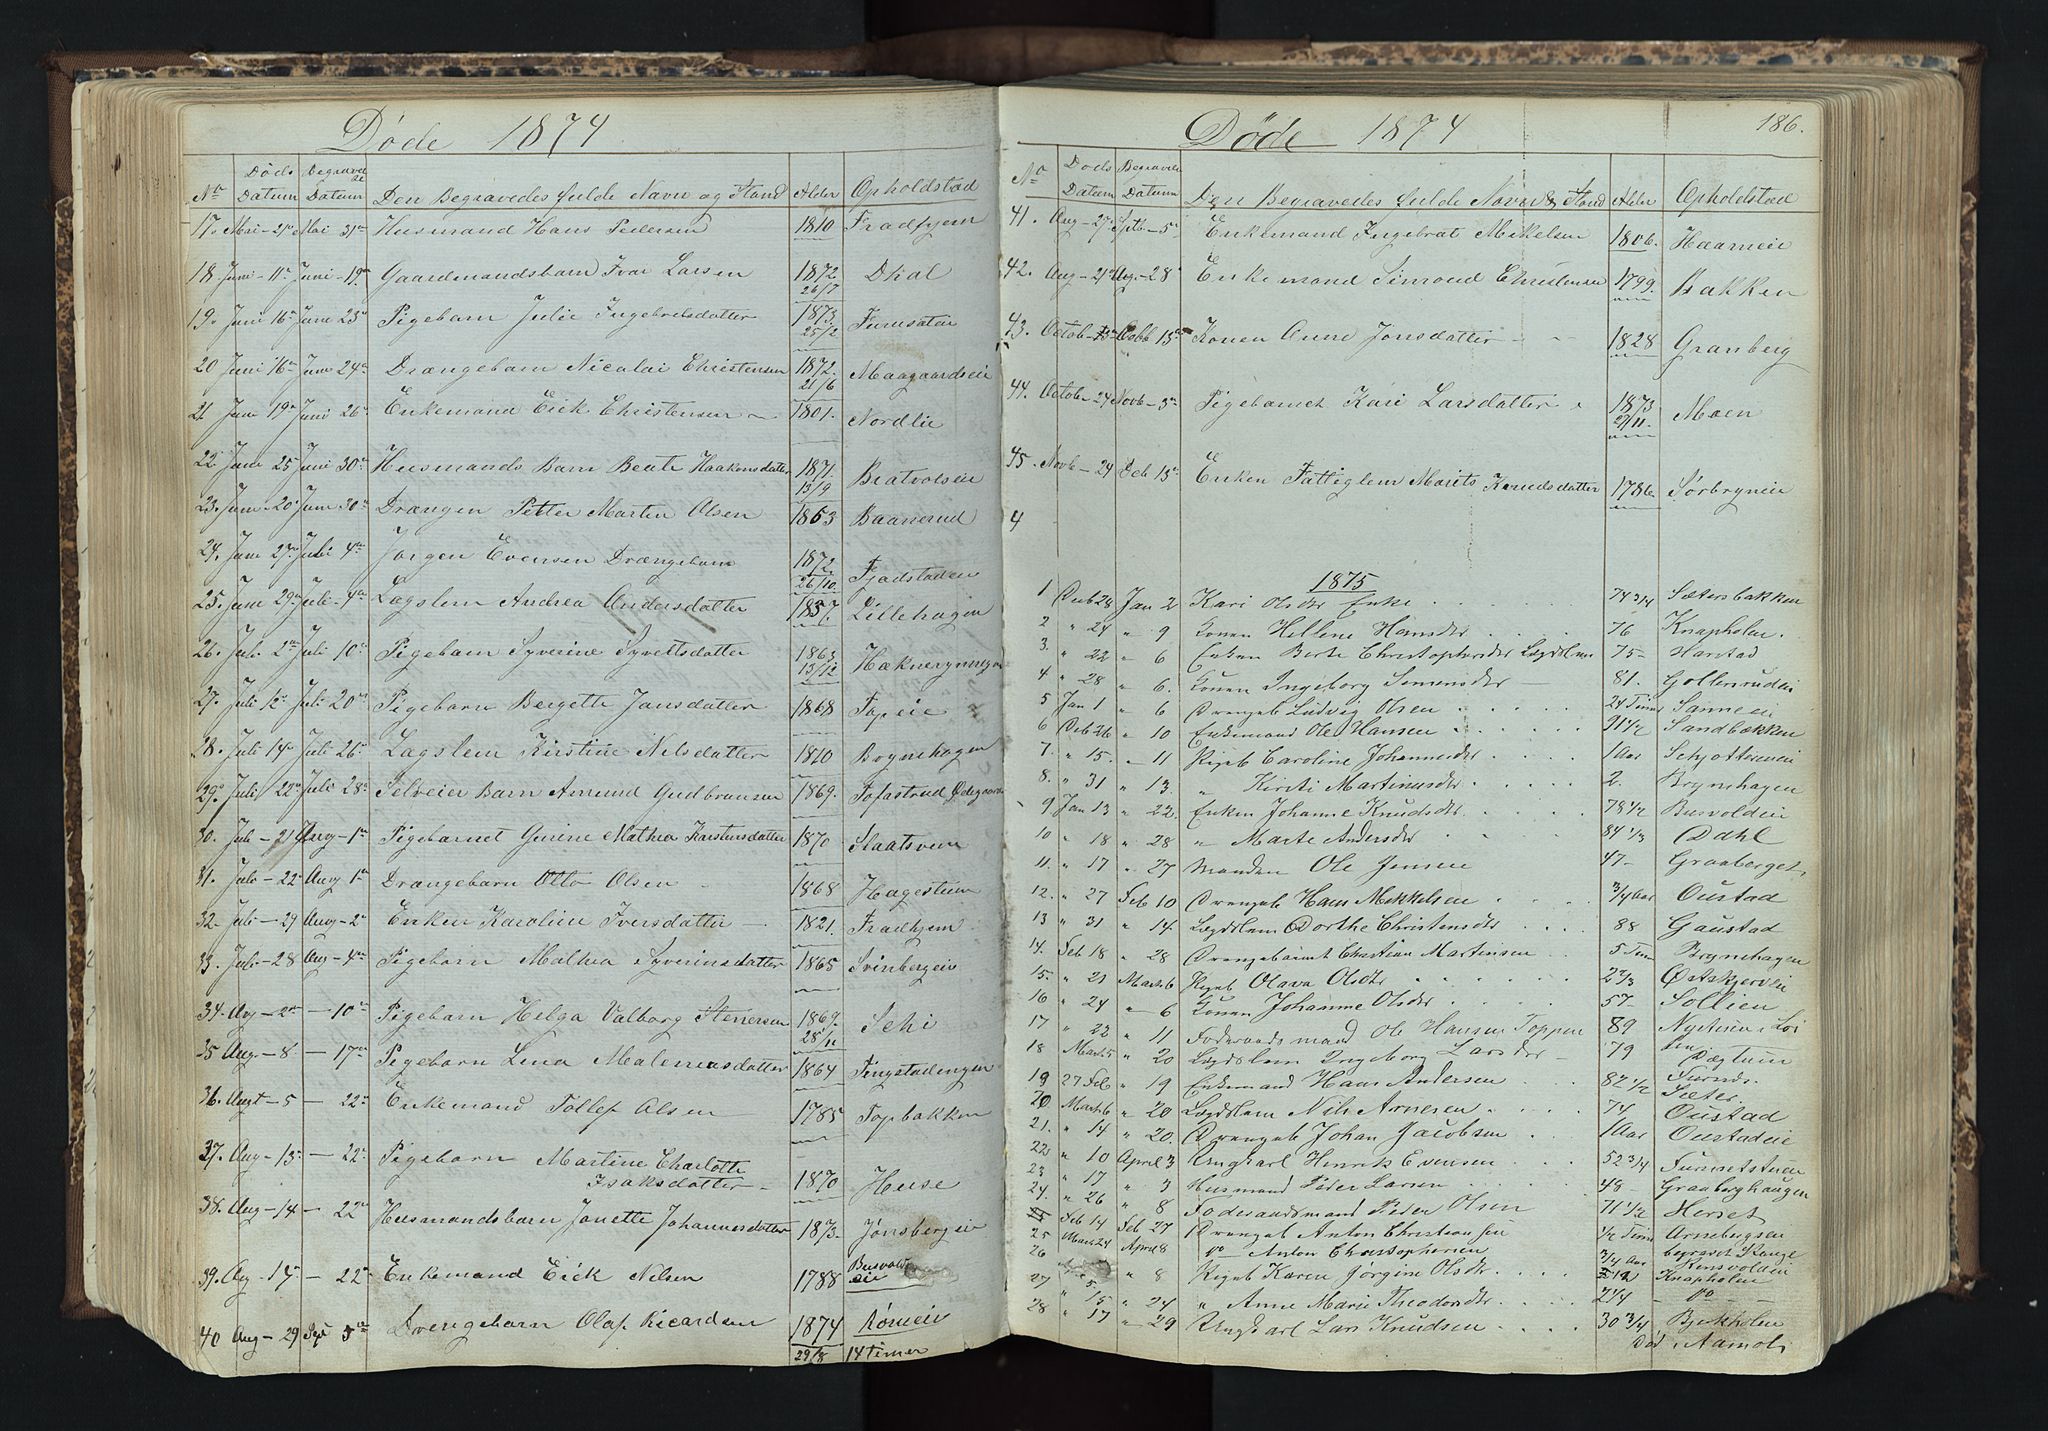 Døde 1874
No Døds Datum Begravel se Datum Den Begravedes fulde Navn og Stand Alder Opholdstad
17. Mai - 21 Mai 31 Husmand Hans Pedersen 1810 Fradhjem
18. Juni - 11 Juni - 19 Gaardemandsbarn Ivar Larsen 1872 26/7 Dhal
19. Juni 16 Juni 23 Pigebarn Julie Ingebretsdatter 1873 25/2 Furusætei
20 Juni 16 Juni 24 Drængebarn Nicolai Christensen 1872 21/6 Maagaardseie
21 Juni 19 Juni 26 Enkemand Erik Christensen 1801. Nordlie
22 Juni 25 Juni 30 Husmands Barn Beate Haakensdatter 1871. 13/9 Bratvoleie
23. Juni 20 Juni 30 Drængen Petter Martin Olsen 1853 Baanerud
24. Juni 27 Juli 4 Jørgen Evensen Drængebarn 1872 26/10 Fjadstadeie
25. Juni 29 Juli - 4 Lægslem Andrea Andersdatter 1857. Lillehagen
26. Juli 2 Juli 10 Pigebarn Syverine Syvertsdatter 1863 13/12
27. Juli 12 Juli 20 Pigebarn Bergette Jansdatter 1868 Topeie
28. Juli 14 Juli 26 Lægslem Kirstine Nilsdatter 1810 Brynehagen
29 Juli 22 Juli 28 Selveier Barn Amund Gudbransen 1869. Tofastrud Ødegaard
30. Juli - 21 Aug - 1 Pigebarnet Gurine Mathea Karstensdatter 1870 Slaatsveen
31. Juli - 22 Aug 1 Drængebarn Otto Olsen 1868 Hagestuen
32. Juli - 29 Aug - 2 Enken Karoline Iversdatter 1821. Fradhjem
33. Juli - 28 Aug - 4 Pigebarn Mathea Syverinsdatter 1865 Svinbergeie
34. Aug - 2 - 10 Pigebarn Helga Valborg Stenersen 1869. 28/11 Sehi
35 Aug - 8 - 17 Pigebarn Lina Maleneasdatter 1864 Tingstadengen
36. Augt - 5 - 22 Enkemand Tollef Olsen 1785 Topbakken
37. Aug - 13 - 22 Pigebarn Martine Charlotte
Isaksdatter 1870 Huse
38. Aug - 14 - 22 Husmandsbarn Janette Johannesdatter 1873. Jønsbergeie
39. Aug - 15 - 22 Enkemand Erik Nilsen 1788 Busvold eie
40 Aug - 29 Sept 5 Drengebarn Olaf Ricardsen 1874 29/8 Rømeie 14 timer
Døde 1874 186.
No Døds Datum Begravel Datum Den Begravedes fulde Navn & Stand Alder Opholdstad
41. Aug - 27 Septb - 5 Enkemand Ingebrat Mikelsen 1806. Haarneie
42. Aug - 21 Aug - 28 Enkemand Simond Christensen 1799. Bakken
43. Octob - 13 Octb 15 Konen Anne Jonsdatter 1828 Granberg
44. October - 24 Novb - 3 Pigebarnet Kari Larsdatter 1873 27/11 Moen
45. Novb - 24 Deb 15 Enken Fattiglem Marits Knudsdatter 1786. Sørbryneie
4
1875
1 Decb 28 Jan 2 Kari Olsdr Enke 74 3/4 Sætersbakken
2 " 24 " 9 Konen Hellene Hansdr 76 Knapholen.
3. " 22 " 6 Enken Berte Christophersdr Lægdslem 75 - Harstad
4 " 28 " 6. Konen Ingeborg Simensdr 81. Gollerudeie
5 Jan 1 " 6 Drengeb Ludvig Olsen 24 Timer Sanneeie
6 Decb 26 " 10 Enkemand Ole Hansen 91 1/2 Sandbækken
7. " 15. " 11 Pigeb Caroline Johannesdr 1 Aar Schjotterneie
8. " 31 " 13. " Kirsti Martinusdr 2. Brynehagen
9 Jan 13 " 22. Enken Johanne Knudsdr 78 1/2 Busvoldeie
10 " 18 " 28 " Marte Andersdr 84 1/3 Dahl
11. " 17 " 27 Manden Ole Jensen 47 - Graaberget.
12. " 27 Feb 10 Drengeb Hans Mekkelsen 3/4 Aar Oustad
13 " 31 " 14. Lægdslem Dorthe Christensdr 88 Gaustad
14. Feb 18 " 28 Drengebarnet Christian Martinsen 5 Timer Brynehagen
15. " 21 Marts 6 Pigeb Olava Olsdr 2 2/3 Østskjerveie
16 " 24 " 6 Konen Johanne Olsdr 57 - Sollien
17 " 22 " 11 Foderaadsmand Ole Hansen Toppen 89
18 Marts 5 " 20 Lægdslem Ingeborg Larsdr 79 Dægtun
19 27 Feb " 19. Enkemand Hans Andersen 82 1/2 Sæter.
20 Marts 6 " 20 Lægdslem Nils Arnesen 74 Oustad
21. " 14 " 20. Drengeb Johan Jacobsen 1 Aar Oustadeie
22 " 10 April 3 Ungkarl Henrik Evensen 52 3/4 Furusetstuen
23 " 17 " 3 Husmand Peder Larsen 48 - Graaberghaugen
24. " 26 " 8 Foderaadsmand Peder Olsen 71 1/2 Herset
Feb 14 Feb 27 Drengeb Anton Christiansen 1/2 Time Arnebergsen
25 Marts 24 April 8 Do Anton Christophersen 3/4 Aar
26 " 8 Pigeb Karen Jørgine Olsdr Knapholen
27 " 5 " 24 " Anne Marie Theodorsdr 2 1/4 Do
28 " 17 " 29 Ungkarl Lars Knudsen 30 3/4 Bjekholen
Død i Aamot.